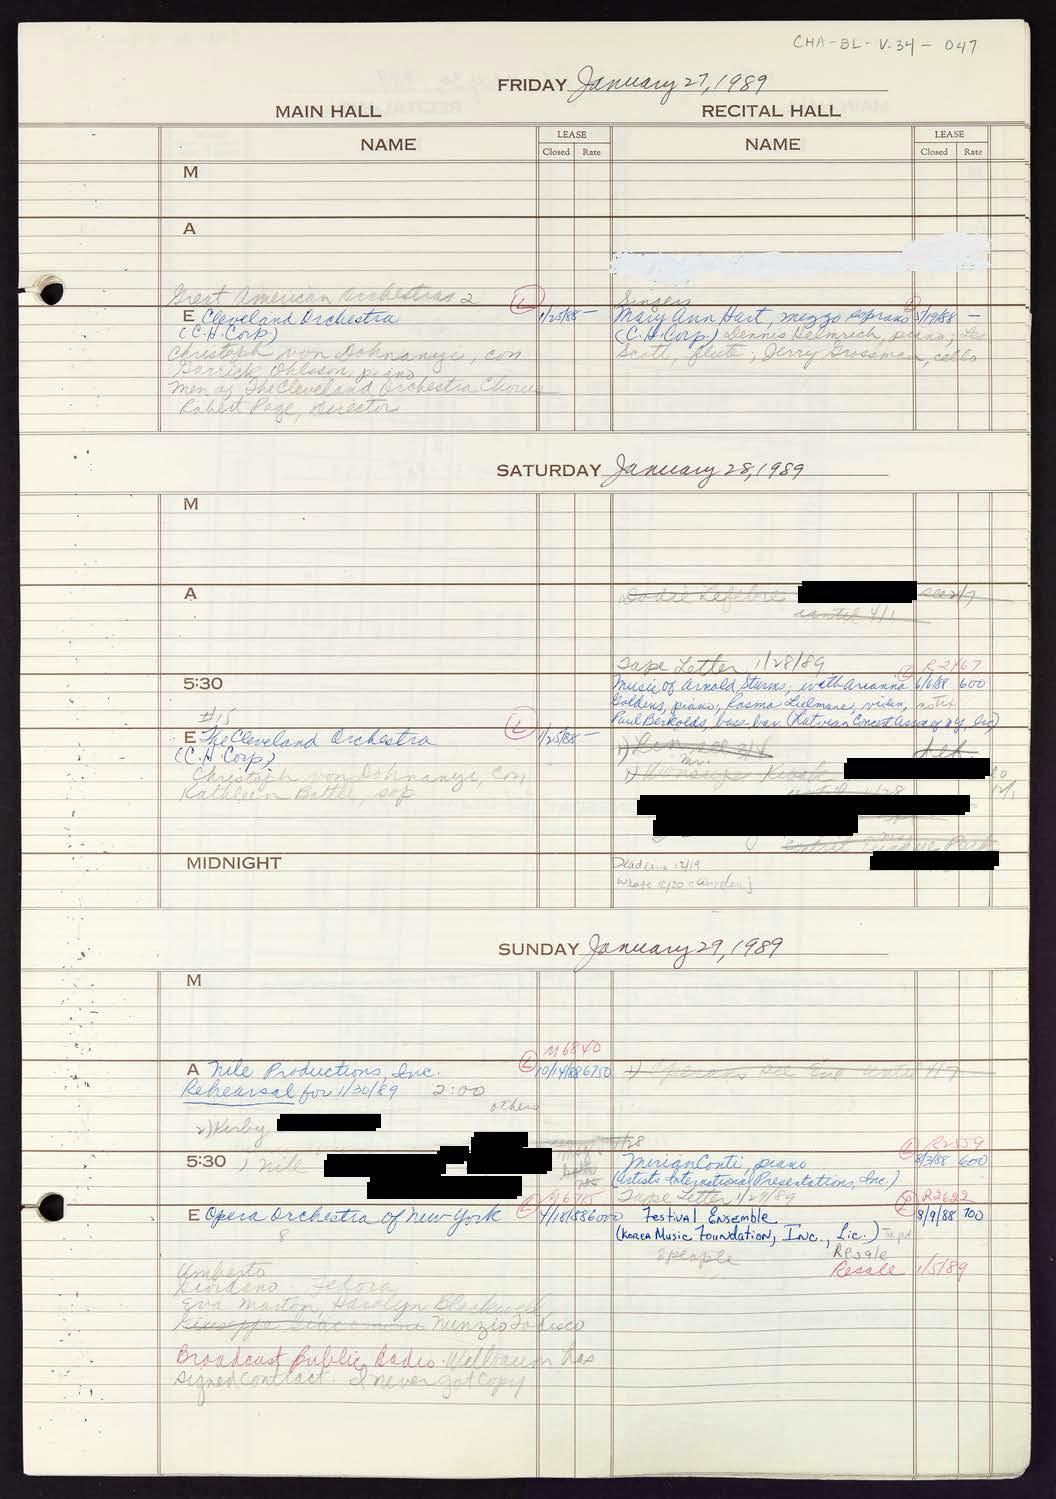 CHA-BL-V.34-047
FRIDAY January 27, 1989
MAIN HALL RECITAL HALL
NAME LEASE NAME LEASE
Closed Rate Closed Rate
M
A
Great American Orchestras 2
Singers
E Cleveland Orchestra L 1/25/88 —
(C.H. Corp.)
Christoph von Dohnanyi, con
Garrick Ohlsson, piano
Men of The Cleveland Orchestra Chorus
Robert Page, Director
Mary Ann Hart, mezzo soprano 5/19/88 —
(C.H. Corp.) Dennis Helmrich, piano;
Scott, flute; Jerry Grossman, cello
SATURDAY January 28, 1989
M
A
until 4/1
Tape Letter 1/28/89
L R2467
5:30
Music of Arnold Sturms, with Arianna 6/6/88 600
Goldens, piano, Rasma Lielmane, violin,
Paul Berkolds, bass-bar (Latvian Concert Assoc of NY, Inc)
#15
E The Cleveland Orchestra L 1/25/88 —
(C.H. Corp)
Christoph von Dohnanyi, con
Kathleen Battle, sop
MIDNIGHT
Deadline 12/19
Wrote 12/20
SUNDAY January 29, 1989
M
M6840
A Nile Productions, Inc. L 10/14/88 6750
Rehearsal for 1/30/89 2:00
others
2) Kirby
1/28
5:30 1) Nile
L R2559
Mirian Conti, piano 8/3/88 600
(Artists International Presentations, Inc.)
Tape Letter 1/29/89
R2622
E Opera Orchestra of New York 4/18/88 6000
8
Festival Ensemble 8/9/88 700
(Korea Music Foundation, Inc., Lic.)
8 people Resale
Resale 1/5/89
Umberto
Giordano - Fedora
Eva Marton, Harolyn Blackwell
Giuseppe Giacomini Nunzio Todisco
Broadcast Public Radio. Wellbaum has
signed contract. I never got copy